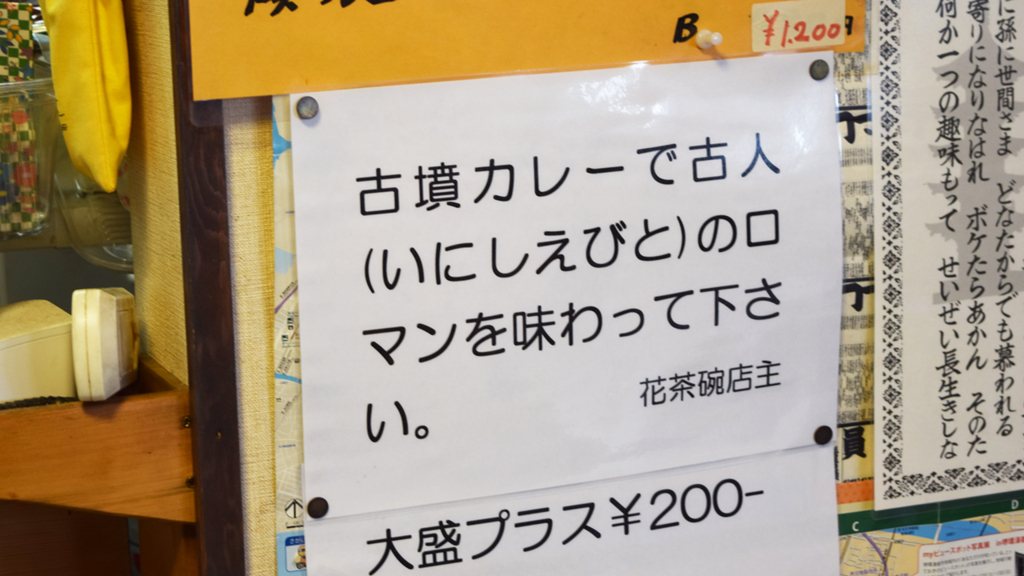 B ¥1,200
古墳カレーで古人
(いにしえびと)のロ
マンを味わって下さ
い。
花茶碗店主
大盛プラス¥200-
に孫に世間さま どなたからでも慕われる
寄りになりなはれ ボケたらあかん そのた
何か一つの趣味もって せいぜい長生きしな
員
C
D
myビュースポット写真展